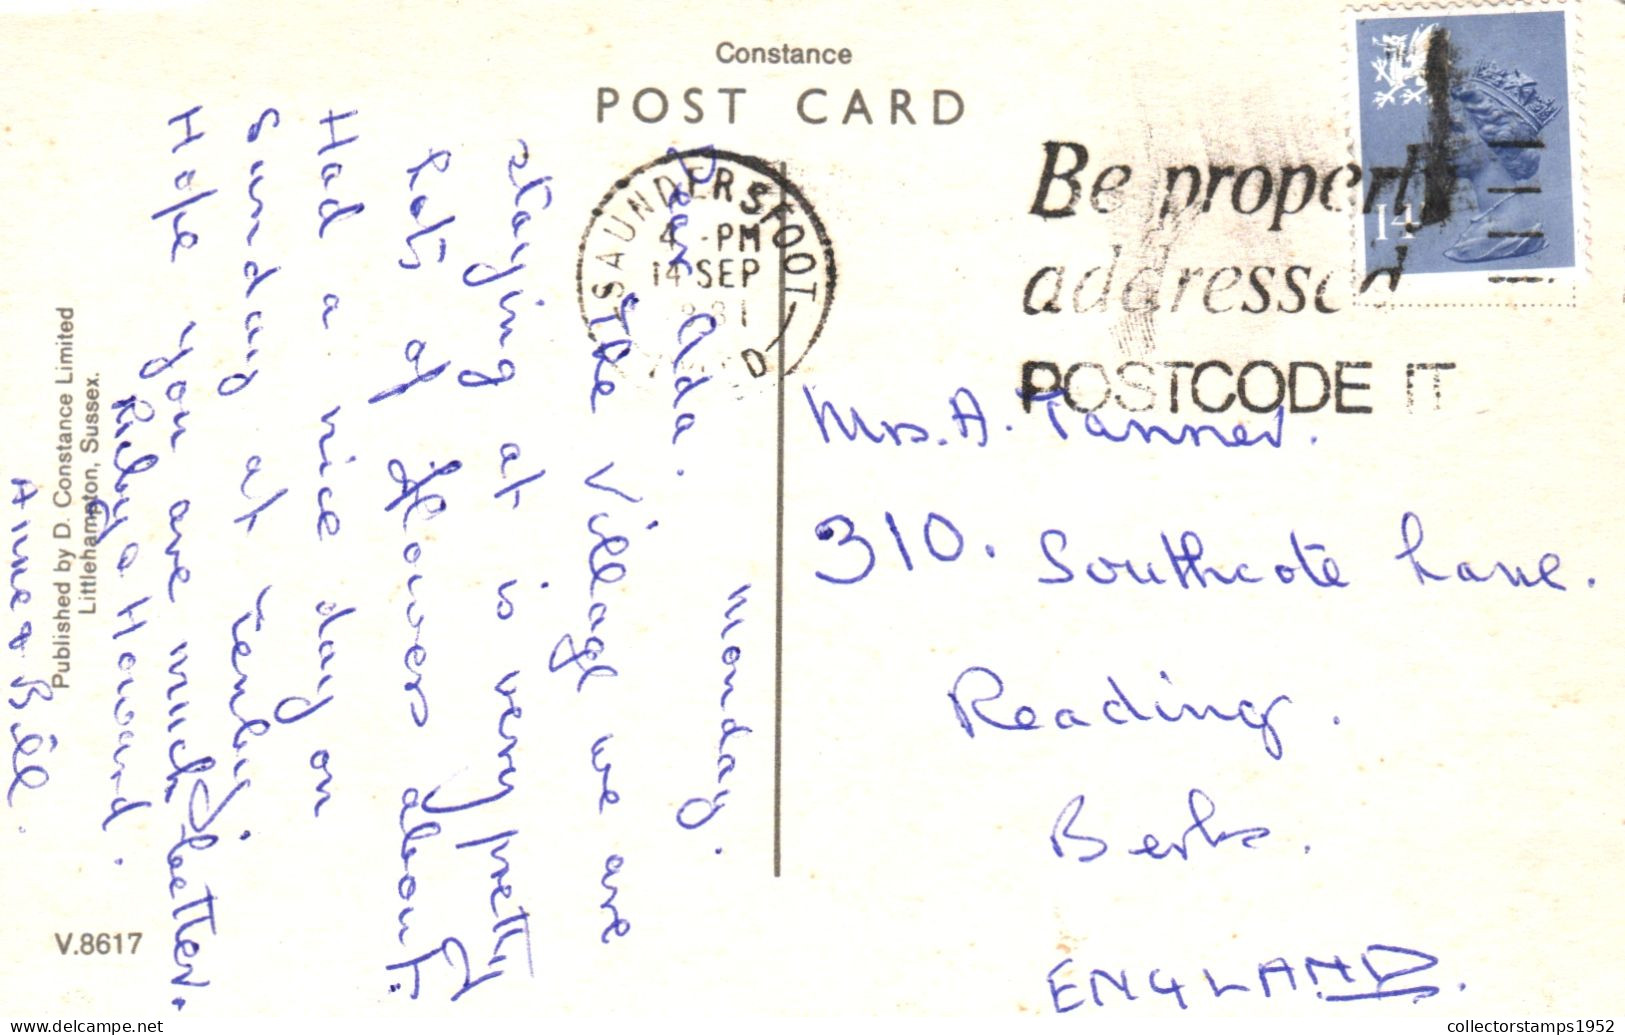 Constance
POST CARD
SAUNDERSFOOT
4 - PM
14 SEP
D
Be properly
addressed
POSTCODE IT
14
Monday.
Dear Ada.
The Village we are
staying at is very pretty
Lots of flowers about.
Had a nice day on
Sunday at Tenby.
Hope you are much better.
Ruby & Howard.
Anne & Bill.
Mrs. A. Tanner.
310. Southcote Lane.
Reading.
Berks.
ENGLAND.
Published by D. Constance Limited
Littlehampton, Sussex.
V.8617
collectorstamps1952